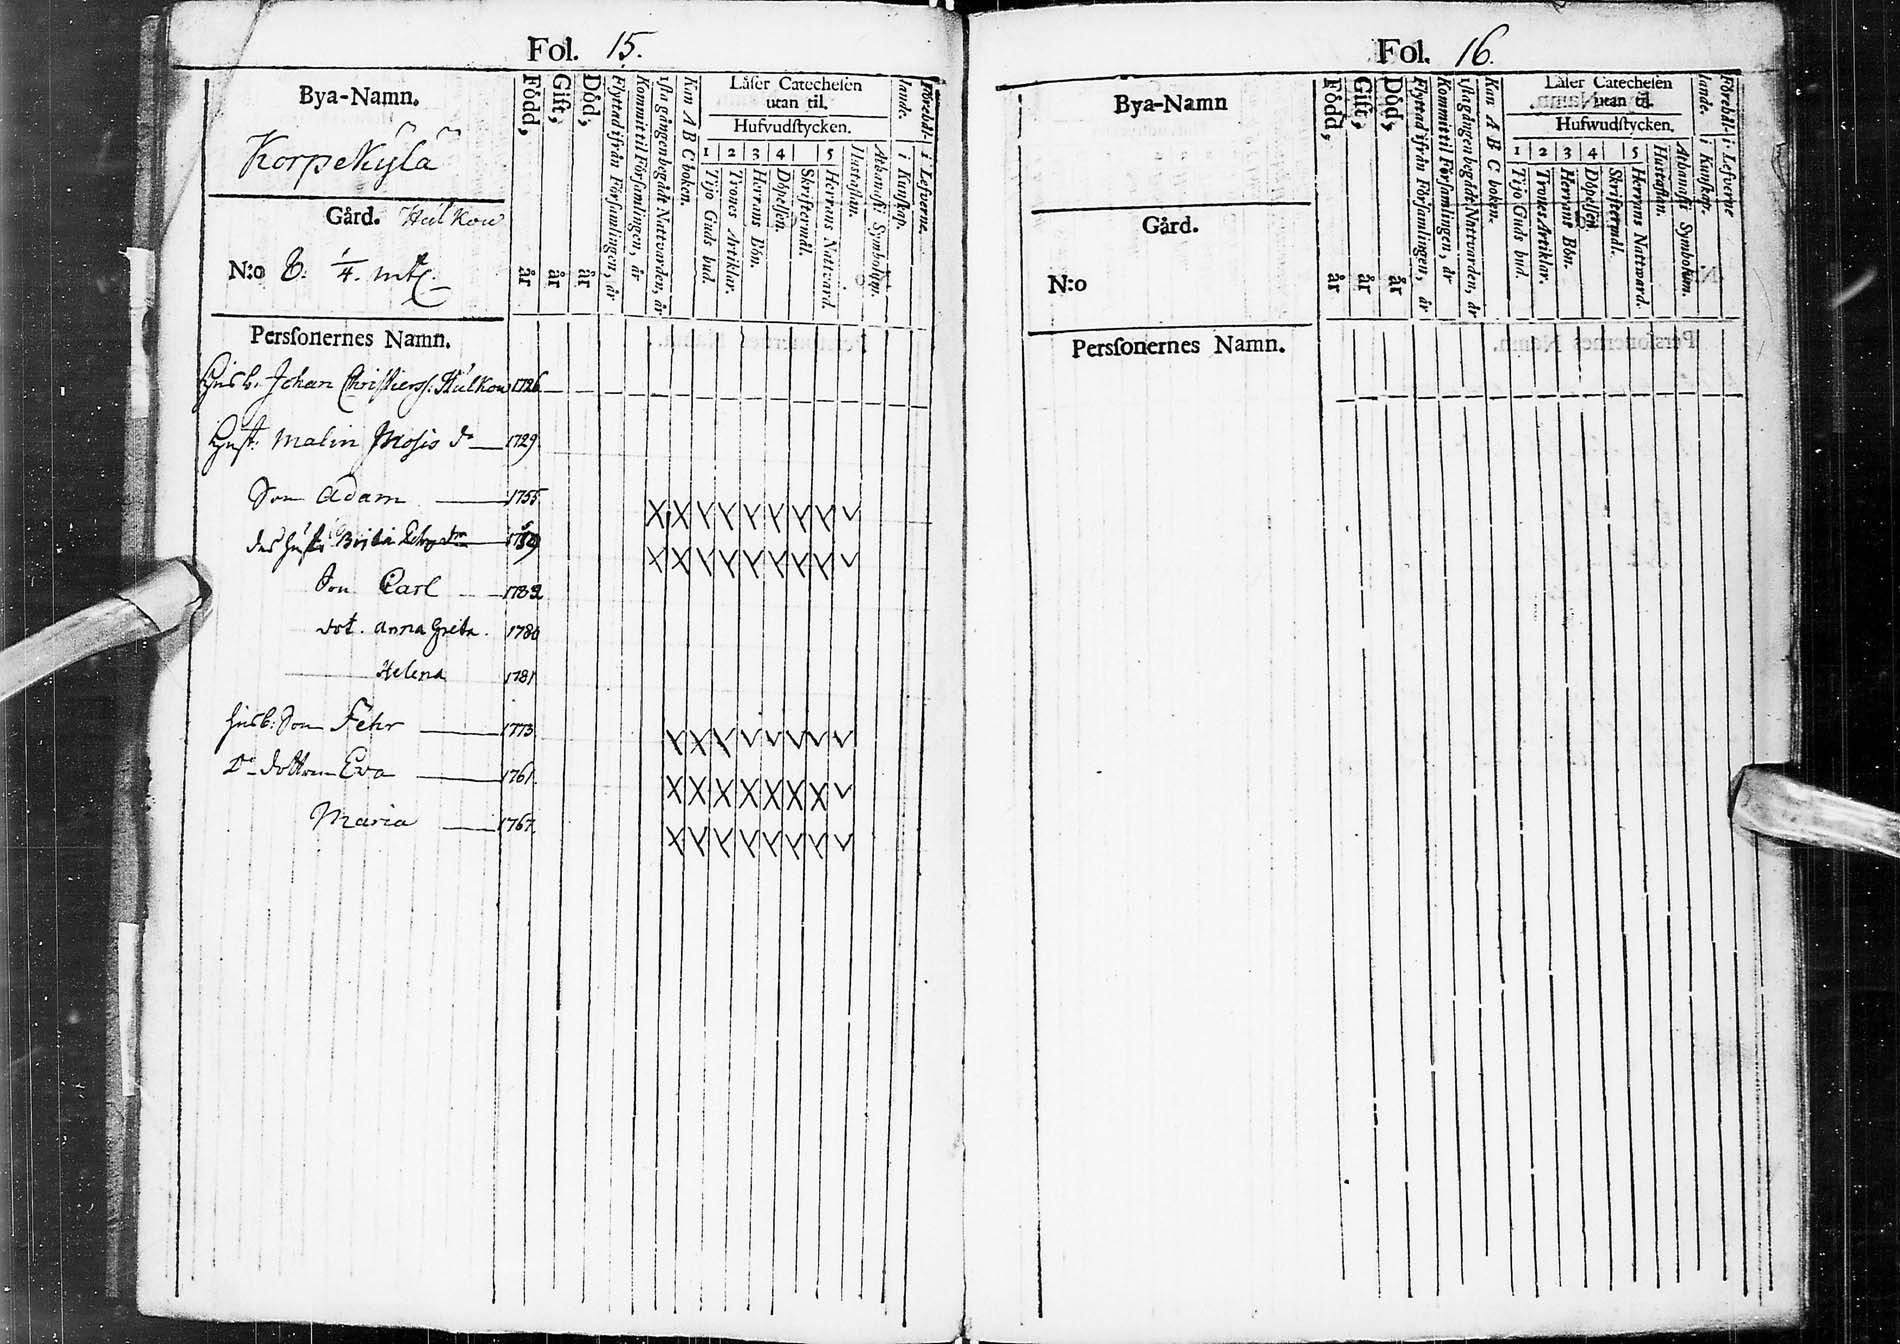 Fol. 15.
Bya-Namn.
Korpekylä
Gård. Hulkou
N:o 8. 1/4. mtl.
Född, år
Gift, år
Död, år
Flyttad ifrån Församlingen, år
Kommit til Församlingen, år
1sta gången begådt Nattvarden, år
Kan A B C boken.
Läser Catechesen
utan til.
Hufvudstycken.
1 2 3 4 5
Tijo Guds bud.
Trones Artiklar.
Herrans Bön.
Döpelsen.
Skriftermål.
Herrans Nattvard.
Hustaflan.
Athanasii Symbolum.
Förehål-
lande.
i Kunskap.
i Lefverne.
Perssonernes Namn.
Husb. Johan Christierss. Hulkou 1726
Hust. Malin Mosis dr 1729
Son Adam 1755
des hust. Brita 1759
Son Carl 1782
dot. Anna Greta. 1780
Helena 1781
husb: Son Pehr 1773
Do dottren Eva 1761.
Maria 1767.
Fol. 16.
Bya-Namn
Gård.
N:o
Född, år
Gift, år
Död, år
Flyttad ifrån Församlingen, år
Kommit til Församlingen, år
1sta gången begådt Natvarden, år
Kan A B C boken.
Läser Catechesen
utan til.
Hufwudstycken.
1 2 3 4 5
Tijo Guds bud.
Trones Artiklar.
Herrans Bön.
Döpelsen.
Skriftermål.
Herrans Nattward.
Hustaflan.
Athanasii Symbolum.
Förehål-
lande.
i Kunskap.
i Lefverne
Perssonernes Namn.